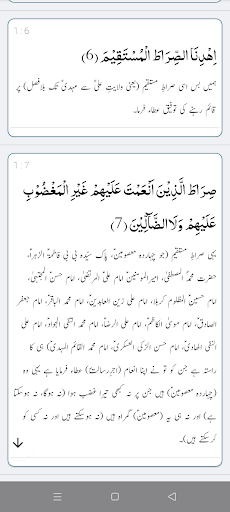 1:6
اِهْدِنَا الصِّرَاطَ الْمُسْتَقِيْمَ (6)
ہمیں بس اسی صراطِ مستقیم (یعنی ولایتِ علیؑ سے مہدیؑ تک بلافصل) پر
قائم رہنے کی توفیق عطاء فرما۔
1:7
صِرَاطَ الَّذِيْنَ اَنْعَمْتَ عَلَيْهِمْ غَيْرِ الْمَغْضُوْبِ
عَلَيْهِمْ وَلَا الضَّآلِّيْنَ (7)
یہی صراطِ مستقیم (جو چہاردہ معصومینؑ، پاک سیّدہ بی بی فاطمۃ الزہراؑ،
حضرت محمدؐ المصطفیٰ، امیرالمومنینؑ امام علیؑ المرتضیٰ، امام حسنؑ المجتبیٰ،
امام حسینؑ المظلومِ کربلا، امام علیؑ زین العابدین، امام محمدؑ الباقر، امام جعفرؑ
الصادق، امام موسیٰؑ الکاظم، امام علیؑ الرضا، امام محمدؑ التقی الجواد، امام علیؑ
النقی الھادی، امام حسنؑ الزکی العسکری، امام محمدؑ القائم المہدی) ہی کا
راستہ ہے جن کو تو نے اپنا انعام (اجرِ رسالت) عطاء فرمایا ہے یہی وہ
(چہاردہ معصومینؑ) ہیں جن پر نہ کبھی تیرا غضب ہوا (نہ ہوگا، نہ ہوسکتا
ہے) اور نہ ہی یہ (معصومینؑ) گمراہ ہیں (نہ ہوسکتے ہیں اور نہ کسی کو
کرسکتے ہیں)۔